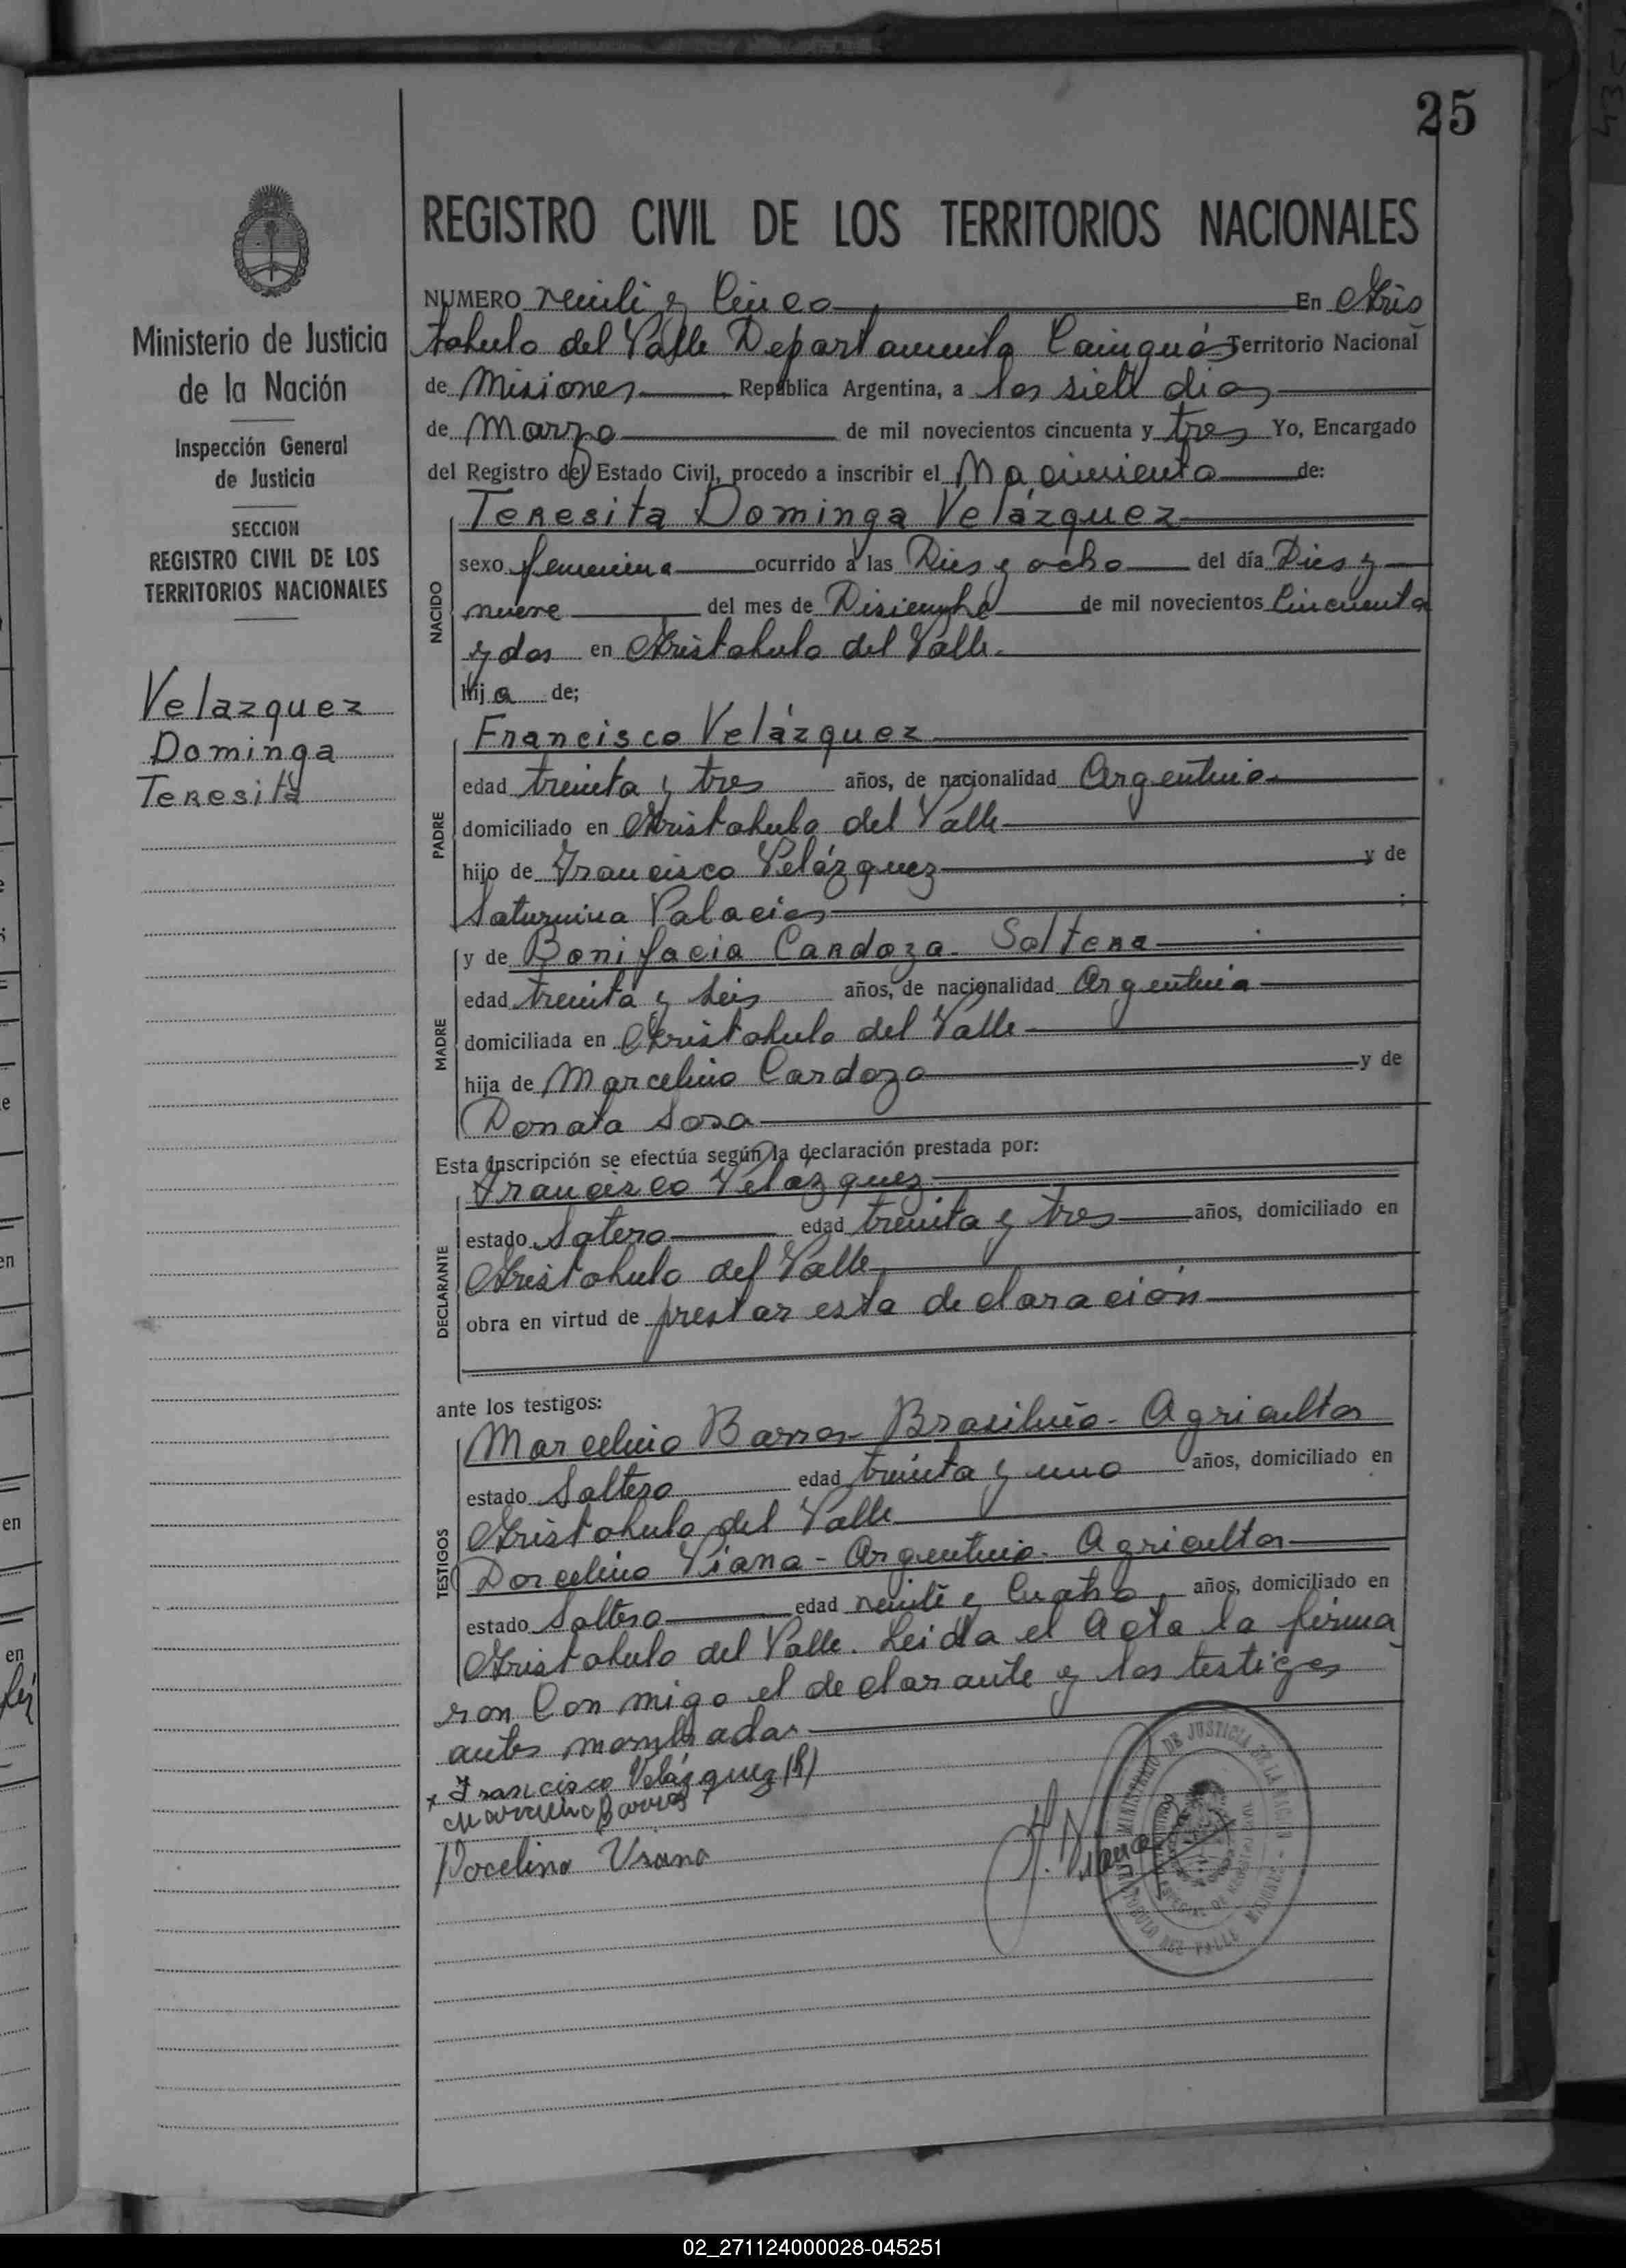 25
REGISTRO CIVIL DE LOS TERRITORIOS NACIONALES
Ministerio de Justicia
de la Nación
Inspección General
de Justicia
SECCION
REGISTRO CIVIL DE LOS
TERRITORIOS NACIONALES
Velazquez
Dominga
Teresita
NUMERO veinti y Cinco En Aris
tobulo del Valle Departamento Cainguás Territorio Nacional
de Misiones República Argentina, a los siete dias
de Marzo de mil novecientos cincuenta y tres Yo, Encargado
del Registro del Estado Civil, procedo a inscribir el Nacimiento de:
NACIDO
Teresita Dominga Velázquez
sexo femenina ocurrido a las Dies y ocho del día Dies y
nueve del mes de Disiembre de mil novecientos Cincuenta
y dos en Aristobulo del Valle.
hija de;
PADRE
Francisco Velázquez
edad treinta y tres años, de nacionalidad Argentino
domiciliado en Aristobulo del Valle
hijo de Francisco Velázquez y de
Saturnina Palacios ;
MADRE
y de Bonifacia Cardozo. Soltera
edad treinta y seis años, de nacionalidad Argentina
domiciliada en Aristobulo del Valle
hija de Marcelino Cardozo y de
Donata Sosa
Esta inscripción se efectúa según la declaración prestada por:
DECLARANTE
Francisco Velázquez
estado Sotero edad treinta y tres años, domiciliado en
Aristobulo del Valle
obra en virtud de prestar esta declaración
ante los testigos:
TESTIGOS
Marcelino Barros- Brasileño- Agricultor
estado Soltero edad treinta y uno años, domiciliado en
Aristobulo del Valle
Dorcelino Viana - Argentino. Agricultor
estado Soltero edad veinti y Cuatro años, domiciliado en
Aristobulo del Valle. Leida el Acta la firma
ron Con migo el declarante y los testigos
antes mombrados
x Francisco Velázquez (h)
Marcelino Barros
Docelino Viana
MINISTERIO DE JUSTICIA DE LA NACION
ARISTOBULO DEL VALLE MISIONES
02_271124000028-045251